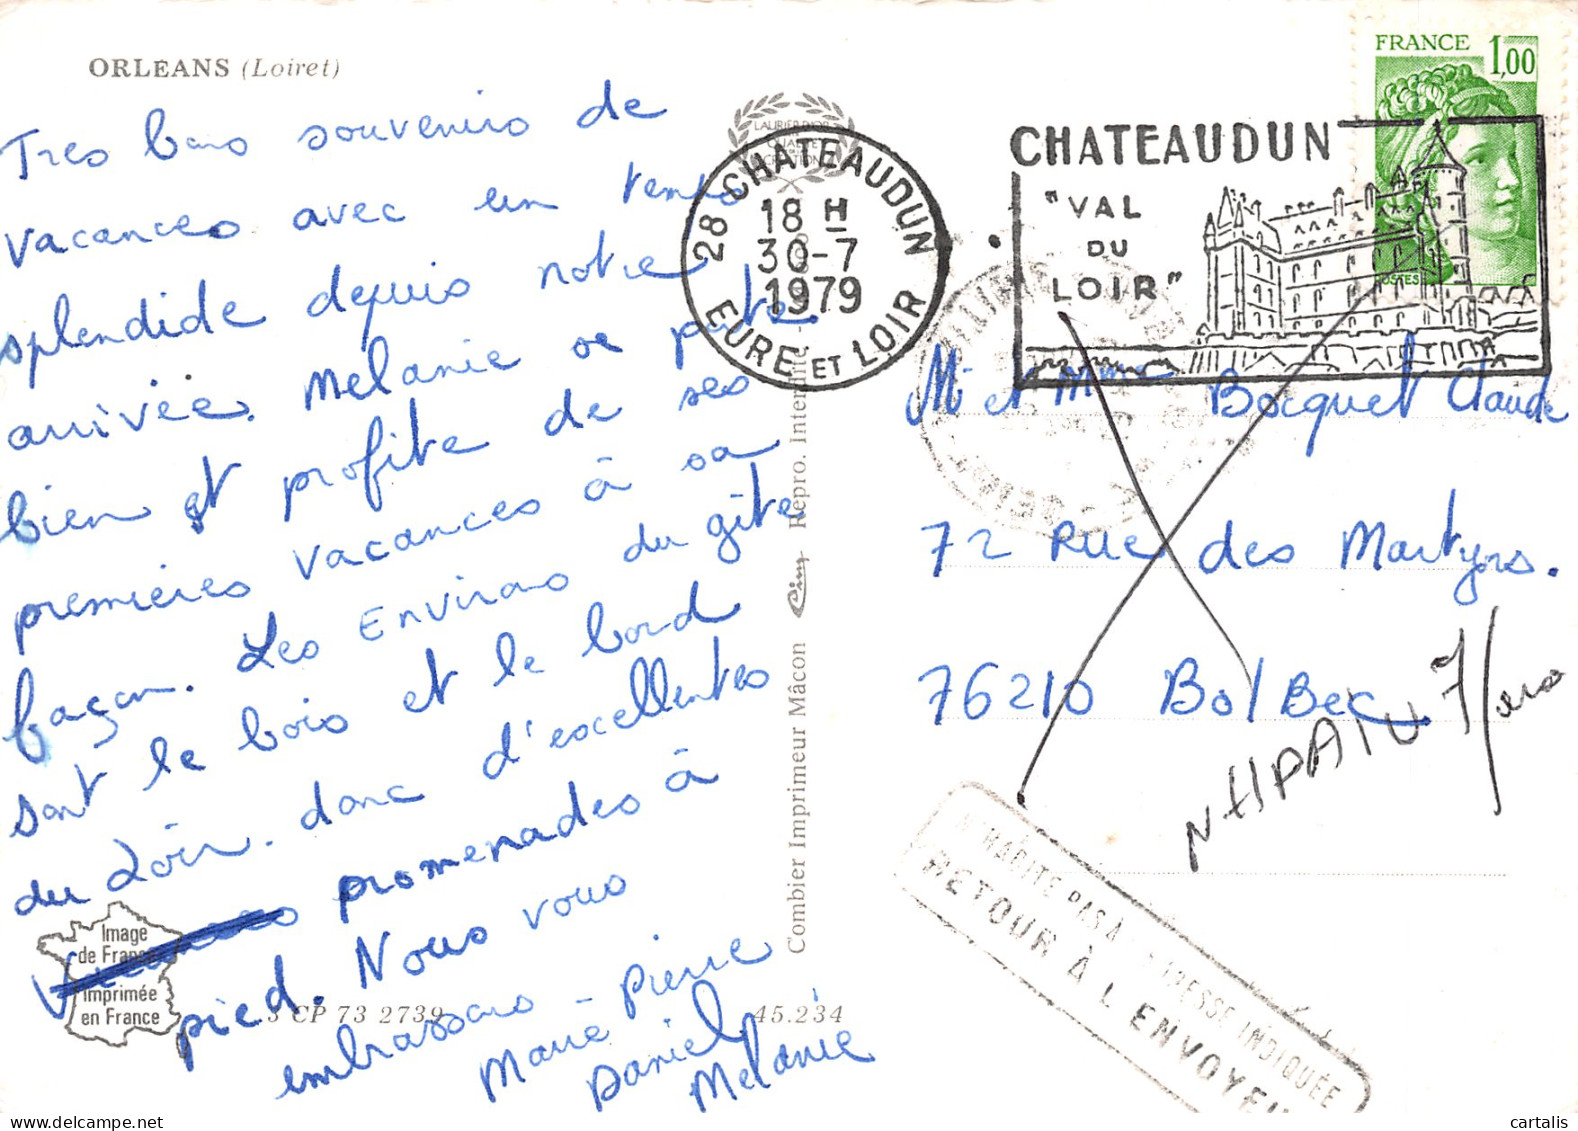 ORLEANS (Loiret)
Tres bons souvenirs de
vacances avec un temps
splendide depuis notre
arrivée. Mélanie se porte
bien et profite de ses
premières vacances à sa
façon. Les Environs du gîte
sont le bois et le bord
du Loir. donc d'excellentes
promenades à
pied. Nous vous
embrassons
Marie-Pierre
Daniel
Mélanie
Image
de France
imprimée
en France
3 CP 73 2739
45.234
Combier Imprimeur Mâcon Cim Repro. Interdite
LAURIER D'OR
28 CHATEAUDUN
18 H
30-7
1979
EURE ET LOIR
CHATEAUDUN
"VAL
DU
LOIR"
FRANCE 1,00
POSTES
Mr et Mme Bocquet Claude
72 Rue des Martyrs.
76210 Bolbec
N'HABITE PAS A L'ADRESSE INDIQUÉE
RETOUR À L'ENVOYEUR
cartalis